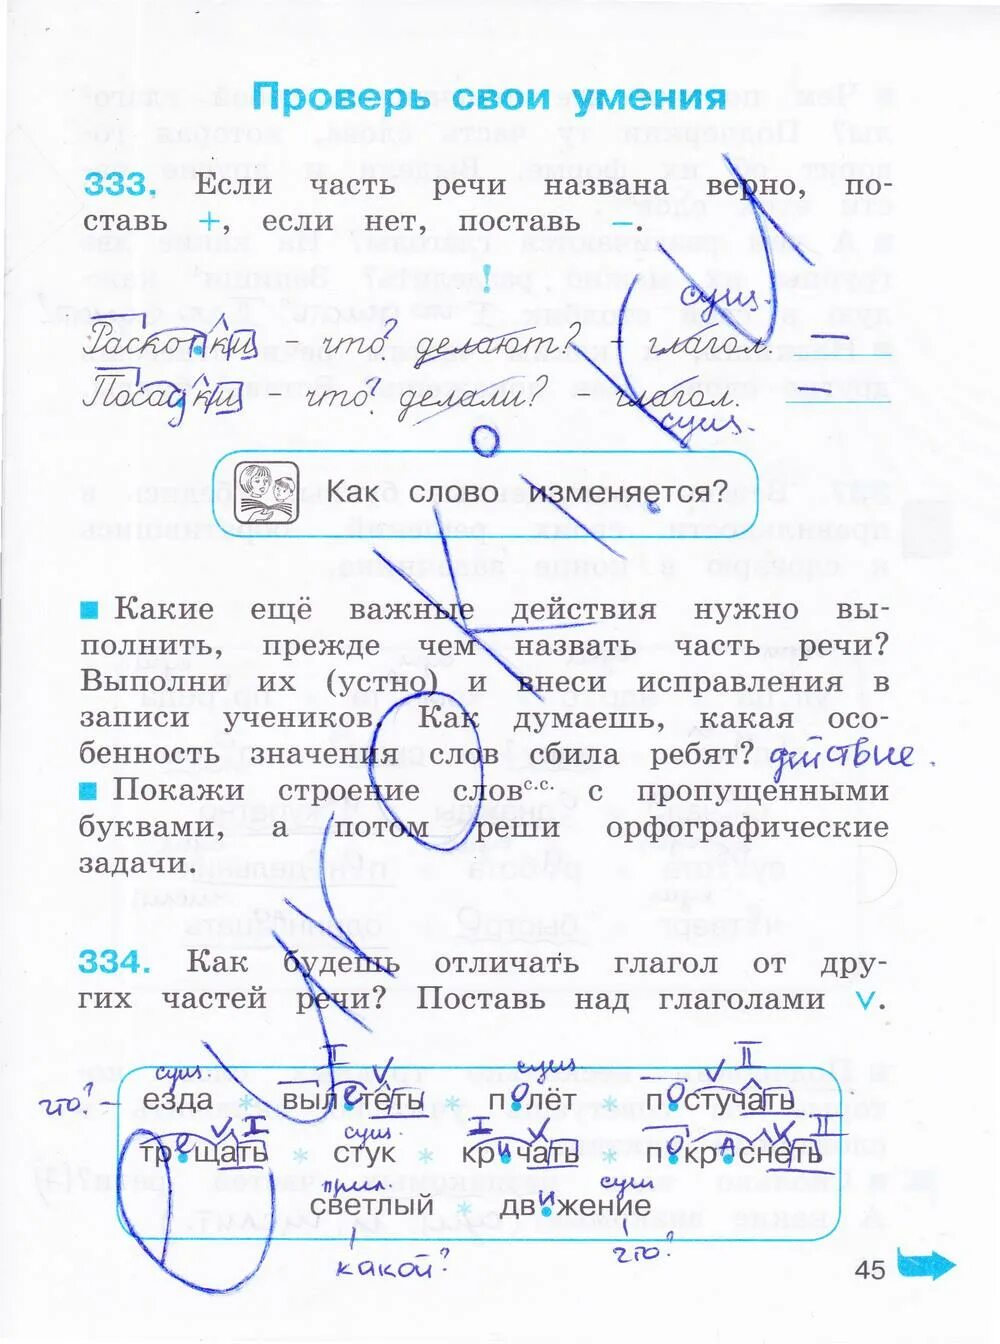 Проверь свои умения
333. Если часть речи названа верно, по-
ставь +, если нет, поставь −.
!
сущ.
Раскопки - что? делают? - глагол. -
Посадки - что? делали? - глагол.
сущ.
Как слово изменяется?
Какие ещё важные действия нужно вы-
полнить, прежде чем назвать часть речи?
Выполни их (устно) и внеси исправления в
записи учеников. Как думаешь, какая осо-
бенность значения слов сбила ребят? действие.
Покажи строение слов с.с. с пропущенными
буквами, а потом реши орфографические
задачи.
334. Как будешь отличать глагол от дру-
гих частей речи? Поставь над глаголами v.
сущ. I v сущ v II
что? езда * вылететь * полёт * постучать
v I сущ. I v v II
трещать * стук * кричать * покраснеть
прил. сущ
светлый * движение
какой? что?
45